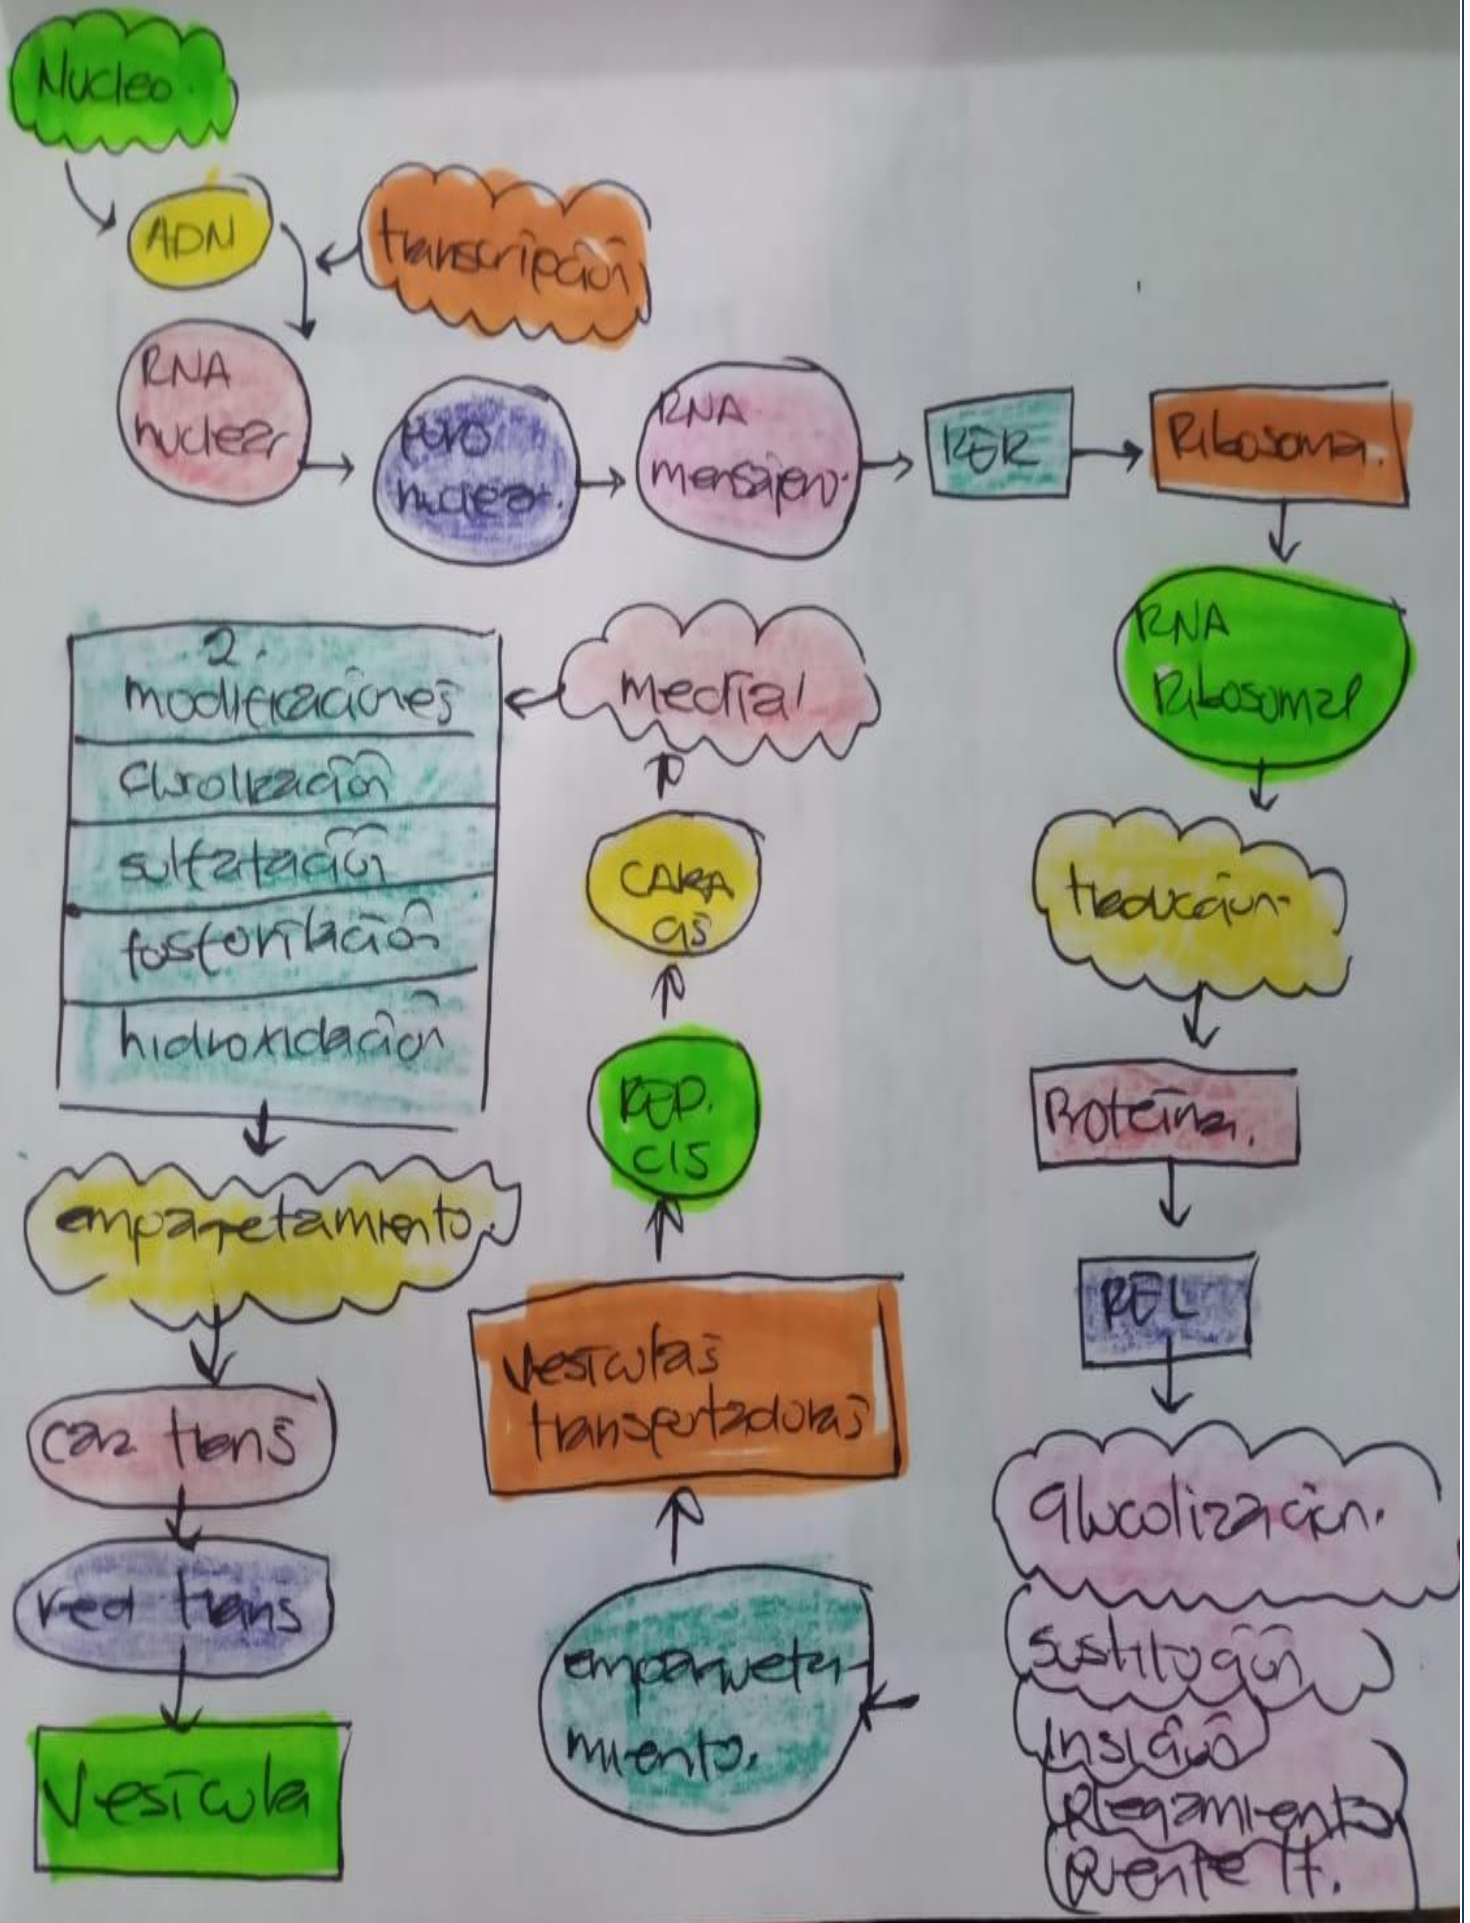 Nucleo.
ADN
transcripción
RNA
nuclear
poro
nuclear.
RNA
mensajero.
RER
Ribosoma.
RNA
Ribosomal
traducción
Proteína.
REL
glucolización.
sustitución
Plegamiento
Puente H.
empaqueta-
miento.
vesículas
transportadoras
RED.
CIS
CARA
CIS
medial
2.
modificaciones
sulfatación
fosforilación
hidroxidación
empaquetamiento.
cara trans
red trans
Vesícula